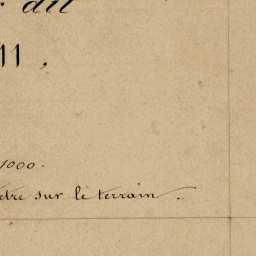 : dit
11 .
1000.
ètre sur le terrain.